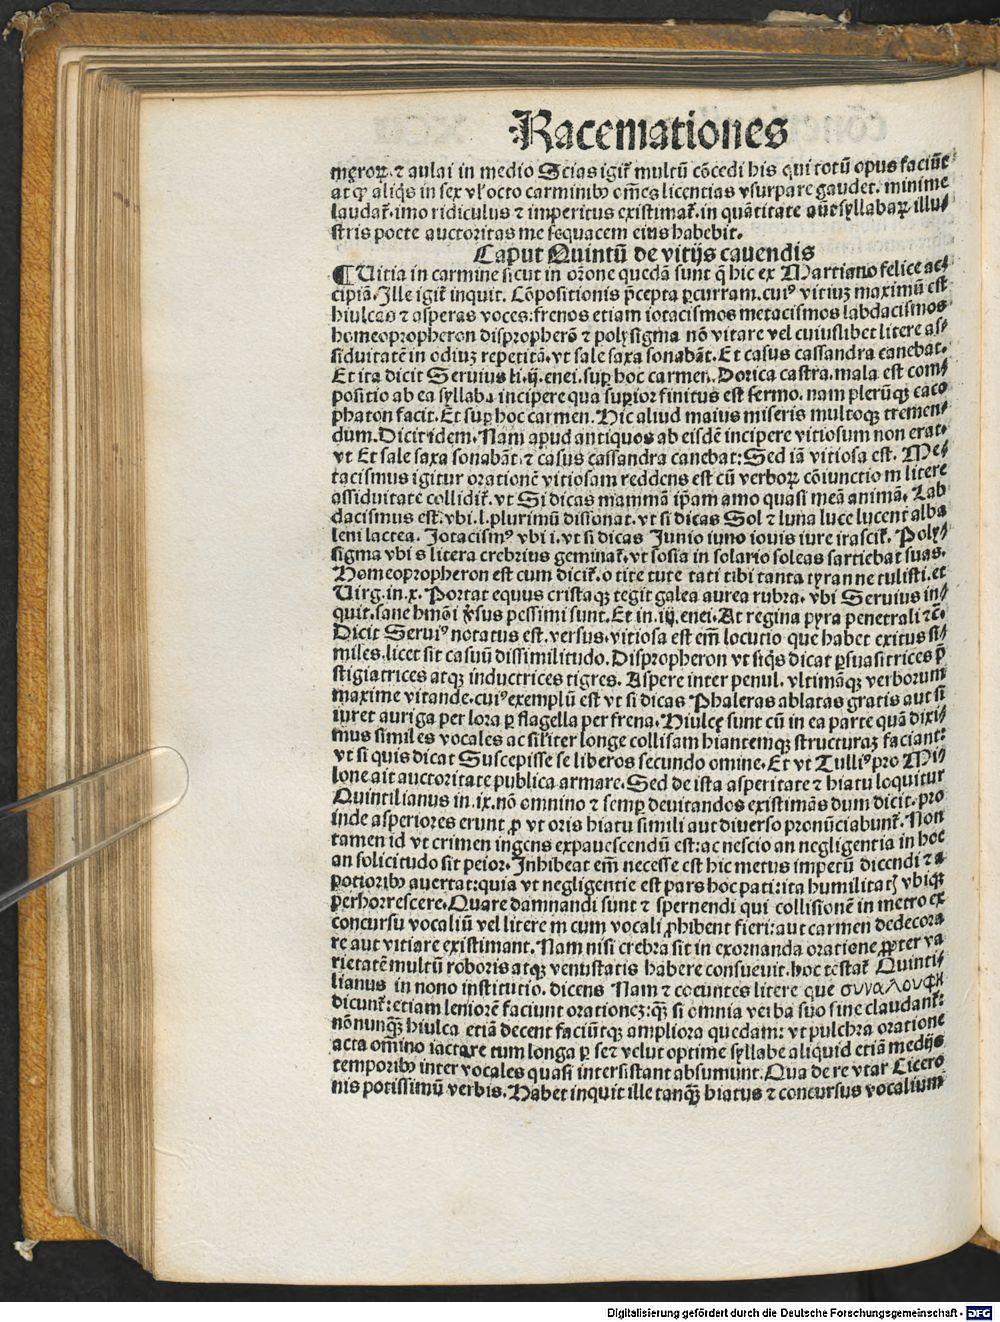 Racemationes
męroꝝ. ⁊ aulai in medio Scias igiť multū cōcedi his qui totū opus faciūt
at ꝙ aliq̄s in sex vľ octo carminibꝰ om̄es licentias vsurpare gaudet. minime
laudať. imo ridiculus ⁊ imperitus existimať. in quātitate aūt syllabaꝝ illu⸗
stris poete auctoritas me sequacem eius habebit.
Caput Quintū de vitijs cauendis
¶ Uitia in carmine sicut in oꝛone quedā sunt q̄ hic ex Martiano felice ac⸗
cipiā. Ille igiť inquit. Cōpositionis p̄cepta ꝑcurram. cuiꝰ vitiuꝫ maximū est
hiulcas ⁊ asperas voces: frenos etiam iotacismos metacismos labdacismos
homeopꝛopheron dispꝛopherō ⁊ polysigma nō vitare vel cuiuslibet litere as⸗
siduitatē in odiuꝫ repetitā. vt sale saxa sonabāt. Et casus cassandra canebat.
Et ita dicit Seruius li. ij. enei. suꝑ hoc carmen. Dorica castra. mala est com⸗
positio ab ea syllaba incipere qua suꝑior finitus est sermo. nam plerūqꝫ caco
phaton facit. Et suꝑ hoc carmen. Hic aliud maius miseris multoqꝫ tremen⸗
dum. Dicit idem. Nam apud antiquos ab eisdē incipere vitiosum non erat.
vt Et sale saxa sonabāt. ⁊ casus cassandra canebat: Sed iā vitiosa est. Me⸗
tacismus igitur orationē vitiosam reddens est cū verboꝝ cōiunctio m litere
assiduitate collidiť. vt Si dicas mammā ip̄am amo quasi meā animā. Lab
dacismus est: vbi. l. plurimū dissonat. vt si dicas Sol ⁊ luna luce lucent alba
leni lactea. Jotacismꝰ vbi i. vt si dicas Junio iuno iouis iure irasciť. Poly⸗
sigma vbi s litera crebrius geminať. vt sosia in solario soleas sartiebat suas.
Homeopꝛopheron est cum diciť. o tite tute tati tibi tanta tyranne tulisti. et
Uirg. in. x. Portat equus cristaqꝫ tegit galea aurea rubra. vbi Seruius in⸗
quit. sane hmōi ꝟsus pessimi sunt. Et in. iiij. enei. At regina pyra penetrali ⁊c̄.
Dicit Seruiꝰ notatus est. versus. vitiosa est em̄ locutio que habet exitus si⸗
miles. licet sit casuū dissimilitudo. Dispꝛopheron vt siq̄s dicat ꝑsuasitrices p̄
stigiatrices atqꝫ inductrices tigres. Aspere inter penul. vltimāqꝫ verborum
maxime vitande. cuiꝰ exemplū est vt si dicas Phaleras ablatas gratis aut si
iuret auriga per lora ꝑ flagella per frena. Hiulcę sunt cū in ea parte quā dixi⸗
mus similes vocales ac siľiter longe collisam hiantemqꝫ structuraꝫ faciant:
vt si quis dicat Suscepisse se liberos secundo omine. Et vt Tulliꝰ pro Mi⸗
lone ait auctoritate publica armare. Sed de ista asperitate ⁊ hiatu loquitur
Quintilianus in. ix. nō omnino ⁊ semꝑ deuitandos existimās dum dicit. pro
inde asperiores erunt ꝓ vt oris hiatu simili aut diuerso pronūciabunť. Non
tamen id vt crimen ingens expauescendū est: ac nescio an negligentia in hoc
an solicitudo sit peior. Inhibeat em̄ necesse est hic metus impetū dicendi ⁊ a
potioribꝰ auertat: quia vt negligentie est pars hoc pati: ita humilitatꝭ vbiqꝫ
perhorrescere. Quare damnandi sunt ⁊ spernendi qui collisionē in metro ex
concursu vocaliū vel litere m cum vocali ꝓhibent fieri: aut carmen dedecora
re aut vitiare existimant. Nam nisi crebra sit in exornanda oratione ꝓpter va
rietatē multū roboris atqꝫ venustatis habere consueuit. hoc testať Quinti⸗
lianus in nono institutio. dicens Nam ⁊ coeuntes litere que συναλουφη
dicunť: etiam leniorē faciunt orationeꝫ: qꝫ̄ si omnia verba suo fine claudanť:
nōnunqꝫ̄ hiulca etiā decent faciūtqꝫ ampliora quedam: vt pulchra oratione
acta om̄ino iactare tum longa ꝑ se ⁊ velut optime syllabe aliquid etiā medijs
temporibꝰ inter vocales quasi intersistant absumunt. Qua de re vtar Cicero
nis potissimū verbis. Habet inquit ille tanqꝫ̄ hiatus ⁊ concursus vocalium
Digitalisierung gefördert durch die Deutsche Forschungsgemeinschaft - DFG